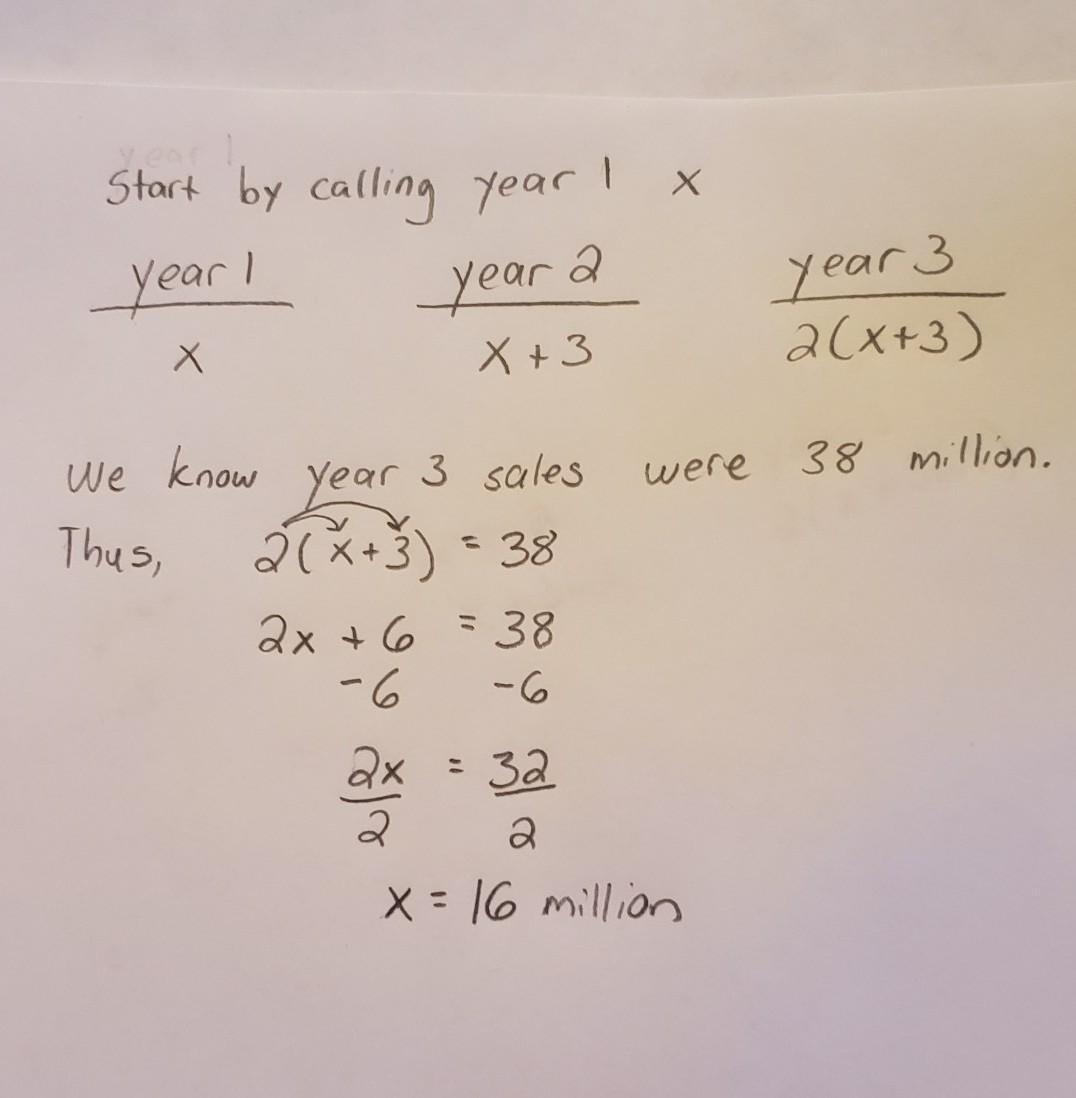 year 1
Start by calling year 1 x
year 1 year 2 year 3
x x + 3 2(x+3)
We know year 3 sales were 38 million.
Thus, 2(x+3) = 38
2x + 6 = 38
-6 -6
2x = 32
2 2
x = 16 million